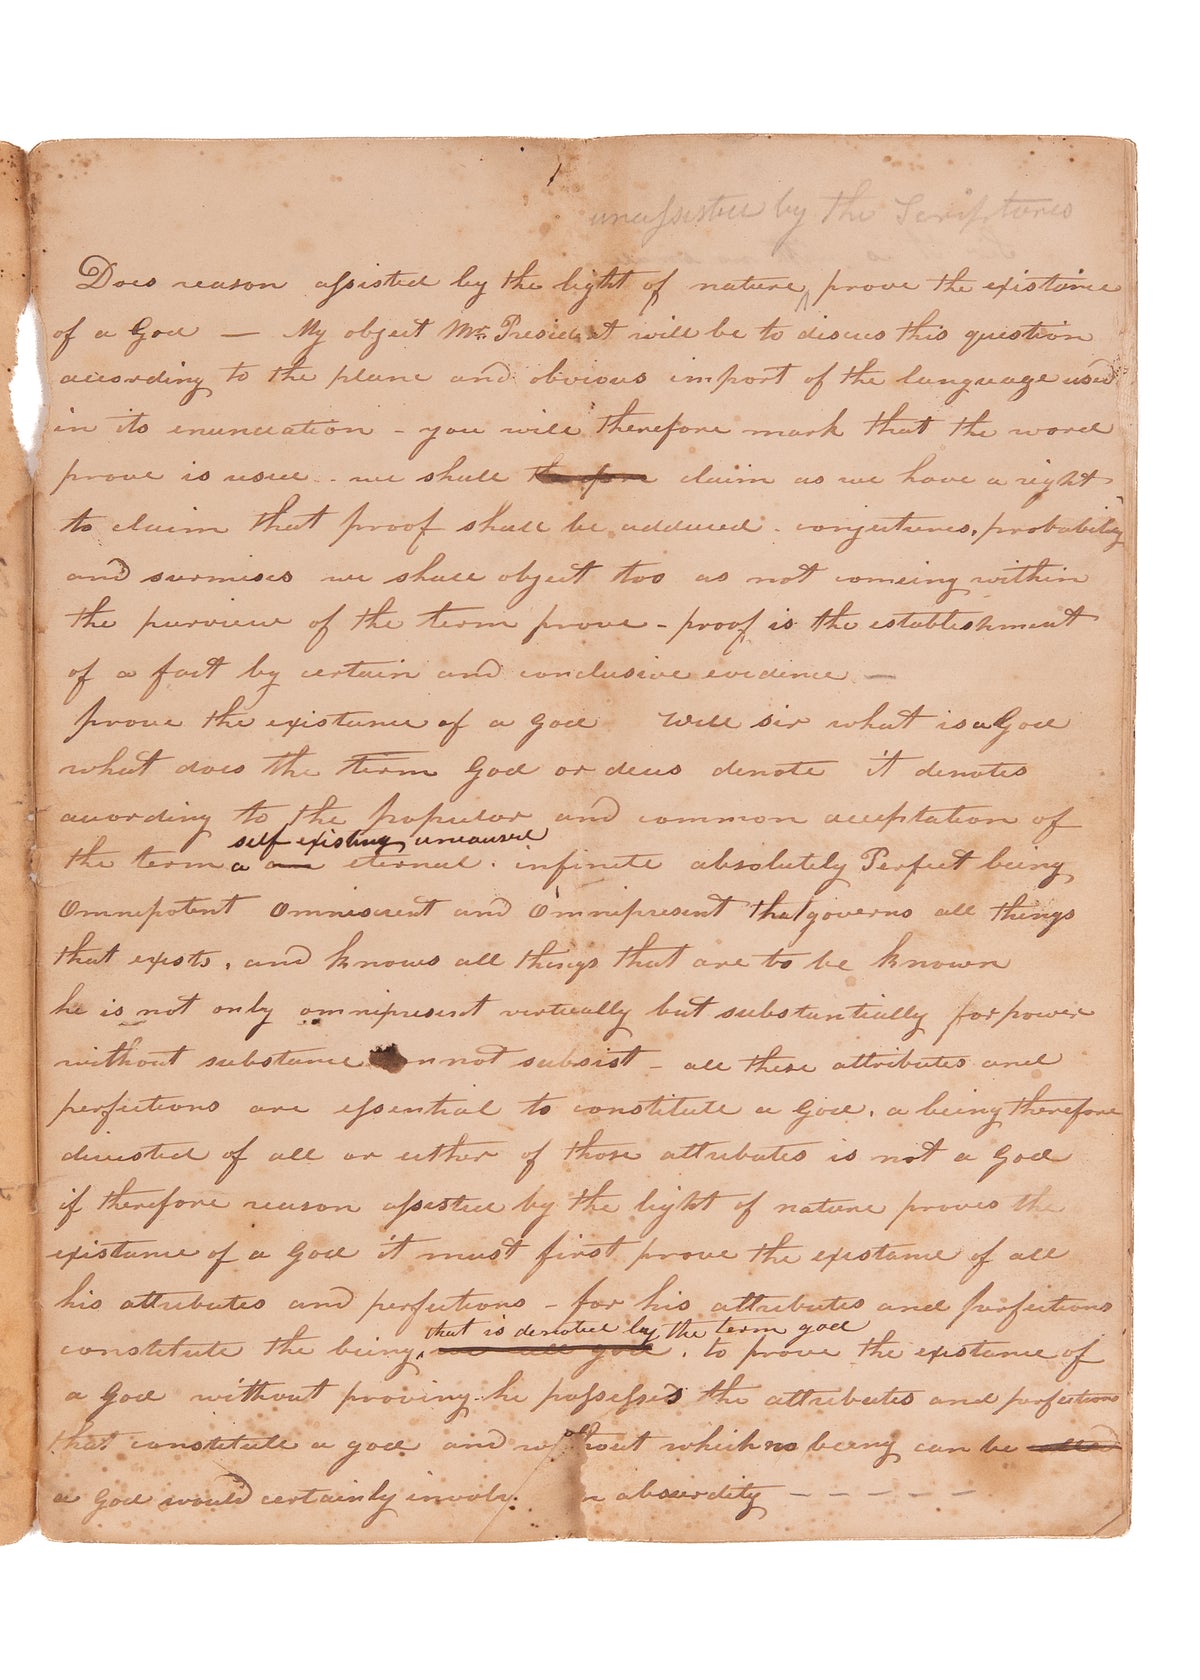 unassisted by the Scriptures
Does reason assisted by the light of nature ^ prove the existance
of a God — My object Mr. President will be to discus this question
according to the plane and obvious import of the language used
in its enunciation - you will therefore mark that the word
prove is used - we shall claim as we have a right
to claim that proof shall be adduced - conjectures, probability
and surmises we shall object too as not comeing within
the purview of the term prove - proof is the establishment
of a fact by certain and conclusive evidence —
prove the existance of a God Well sir what is a God
what does the term God or deus denote it denotes
according to the popular and common acceptation of
self existing uncaused
the term a an eternal. infinite absolutely Perfect being
Omnipotent Omniscient and Omnipresent that governs all things
that exists, and knows all things that are to be known
he is not only omnipresent virtually but substantially for power
without substance cannot subsist - all these attributes and
perfections are essential to constitute a God, a being therefore
divested of all or either of those attributes is not a God
if therefore reason assisted by the light of nature proves the
existance of a God it must first prove the existance of all
his attributes and perfections - for his attributes and perfections
that is denoted by the term god
constitute the being, we call god. to prove the existance of
a God without proving he possesses the attributes and perfections
that constitute a god and without which no being can be called
a God would certainly involv n absurdity — — — — —